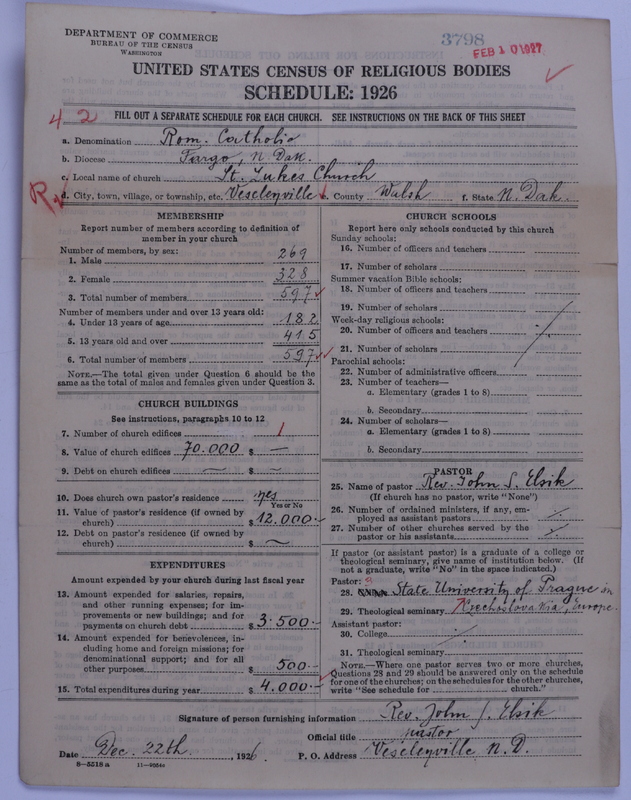 DEPARTMENT OF COMMERCE
BUREAU OF THE CENSUS
WASHINGTON
3798
FEB 10 1927
UNITED STATES CENSUS OF RELIGIOUS BODIES
SCHEDULE: 1926
42
FILL OUT A SEPARATE SCHEDULE FOR EACH CHURCH. SEE INSTRUCTIONS ON THE BACK OF THIS SHEET
a. Denomination Rom. Catholic
b. Diocese Fargo, N. Dak.
c. Local name of church St. Lukes Church
R
d. City, town, village, or township, etc. Veseleyville e. County Walsh f. State N. Dak.
MEMBERSHIP
Report number of members according to definition of
member in your church
Number of members, by sex:
1. Male 269
2. Female 328
3. Total number of members 597
Number of members under and over 13 years old:
4. Under 13 years of age 182
5. 13 years old and over 415
6. Total number of members 597
NOTE.—The total given under Question 6 should be
same as the total of males and females given under Question 3.
CHURCH BUILDINGS
See instructions, paragraphs 10 to 12
7. Number of church edifices 1
8. Value of church edifices 70.000 $ —
9. Debt on church edifices — $ —
10. Does church own pastor's residence yes
Yes or No
11. Value of pastor's residence (if owned by
church) $ 12.000.-
12. Debt on pastor's residence (if owned by
church) $ —
EXPENDITURES
Amount expended by your church during last fiscal year
13. Amount expended for salaries, repairs,
and other running expenses; for im-
provements or new buildings; and for
payments on church debt $ 3.500.-
14. Amount expended for benevolences, in-
cluding home and foreign missions; for
denominational support; and for all
other purposes $ 500.-
15. Total expenditures during year $ 4.000.-
CHURCH SCHOOLS
Report here only schools conducted by this church
Sunday schools:
16. Number of officers and teachers
17. Number of scholars
Summer vacation Bible schools:
18. Number of officers and teachers
19. Number of scholars
Week-day religious schools:
20. Number of officers and teachers
21. Number of scholars
Parochial schools:
22. Number of administrative officers
23. Number of teachers—
a. Elementary (grades 1 to 8)
b. Secondary
24. Number of scholars—
a. Elementary (grades 1 to 8)
b. Secondary
PASTOR
25. Name of pastor Rev. John S. Elsik
(If church has no pastor, write "None")
26. Number of ordained ministers, if any, em-
ployed as assistant pastors
27. Number of other churches served by the
pastor or his assistants
If pastor (or assistant pastor) is a graduate of a college or
theological seminary, give name of institution below. (If
not a graduate, write "No" in the space indicated.)
Pastor:
28. State University of Prague in
29. Theological seminary Czechoslovakia, Europe.
Assistant pastor:
30. College
31. Theological seminary
NOTE.—Where one pastor serves two or more churches,
Questions 28 and 29 should be answered only on the schedule
for one of the churches; on the schedules for the other churches,
write "See schedule for church."
Signature of person furnishing information Rev. John S. Elsik
Official title pastor
Date Dec. 22th, 1926. P. O. Address Veseleyville N.D.
8—5518 a